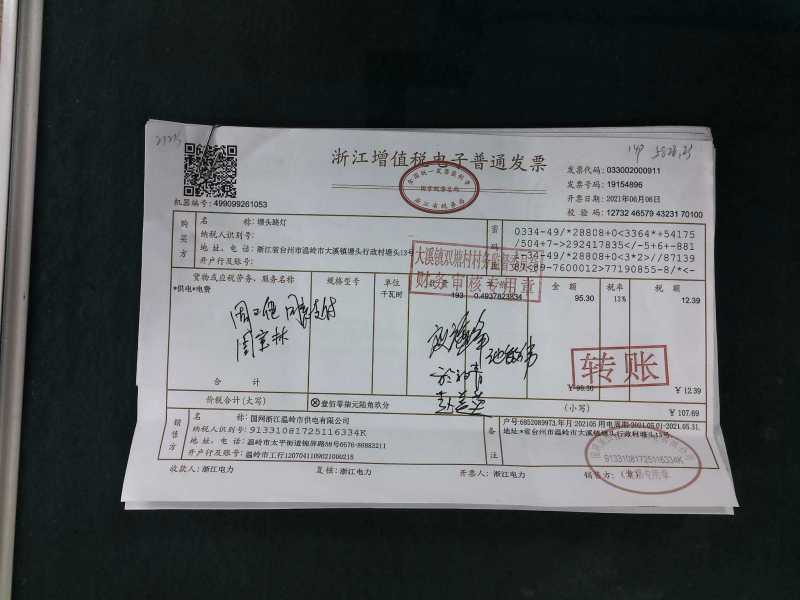 浙江增值税电子普通发票
全国统一发票监制章
国家税务总局
浙江省税务局
机器编号: 499099261053
发票代码: 033002000911
发票号码: 19154896
开票日期: 2021年06月06日
校 验 码: 12732 46579 43231 70100
购买方
名 称: 塘头路灯
纳税人识别号:
地 址、电 话: 浙江省台州市温岭市大溪镇塘头行政村塘头13号
开户行及账号:
密
0334-49/*28808+0<3364**+54175
/504+7->292417835</-5+6+-881
-34-49/*28808+0<3*2>//87139
89<09-7600012>77190855-8/*<-
大溪镇双塘村村务监督委员会
财务审核专用章
货物或应税劳务、服务名称 规格型号 单位 数量 单价 金 额 税率 税 额
*供电*电费 千瓦时 193 0.4937823834 95.30 13% 12.39
同意支付
转账
合 计 ￥95.30 ￥12.39
价税合计(大写) ⓧ壹佰零柒元陆角玖分 (小写) ￥107.69
销售方
名 称: 国网浙江温岭市供电有限公司
纳税人识别号: 91331081725116334K
地 址、电 话: 温岭市太平街道锦屏路88号0576-86883211
开户行及账号: 温岭市工行1207041109021000218
备注
户号:6852089973,年月:202105 用电周期:2021.05.01-2021.05.31,
地址:*省台州市温岭市大溪镇塘头行政村塘头13号
91331081725116334K
发票专用章
收款人: 浙江电力 复核: 浙江电力 开票人: 浙江电力 销售方: (章)